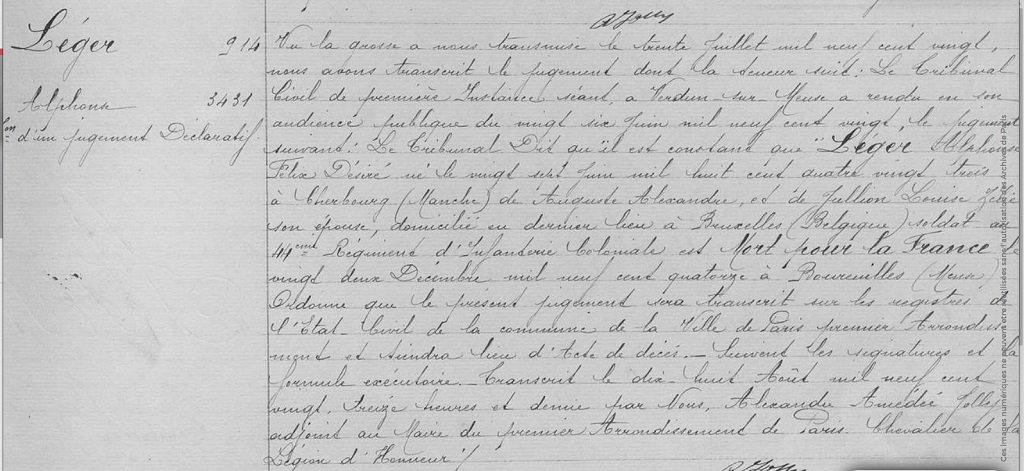 A Jolly
Léger 914
Alphonse 3431
d'un jugement Déclaratif
Vu la grosse a nous transmise le trente Juillet mil neuf cent vingt,
nous avons transcrit le jugement dont la teneur suit: Le Tribunal
Civil de première Instance séant, à Verdun-sur-Meuse a rendu en son
audience publique du vingt six Juin mil neuf cent vingt, le jugement
suivant: Le Tribunal Dit qu'il est constant que "Léger Alphonse
Félix Désiré né le vingt sept Juin mil huit cent quatre vingt trois
à Cherbourg (Manche) de Auguste Alexandre, et de Jullion Louise Zélie
son épouse, domicilié en dernier lieu à Bruxelles (Belgique) soldat au
44eme Régiment d'Infanterie Coloniale est Mort pour la France le
vingt deux Decembre mil neuf cent quatorze à Boureuilles (Meuse)
Ordonne que le présent jugement sera transcrit sur les registres de
l'Etat-Civil de la commune de la Ville de Paris premier Arrondisse-
ment et tiendra lieu d'Acte de décès._ Suivent les signatures et la
formule exécutoire._ Transcrit le dix-huit Août mil neuf cent
vingt, treize heures et demie par Nous, Alexandre Amédée Jolly
adjoint au Maire du premier Arrondissement de Paris. Chevalier de la
Légion d'Honneur /
A Jolly
Ces images numériques ne peuvent être réutilisées sans l'autorisation des Archives de Paris